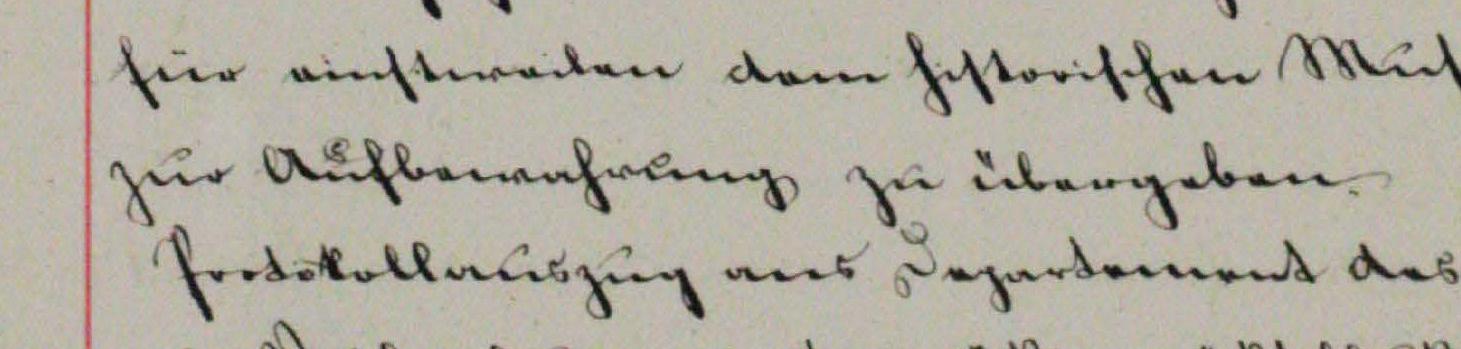 für einstweilen dem historischen Mus
zur Aufbewahrung zu übergeben.
Protokollauszug ans Departement des